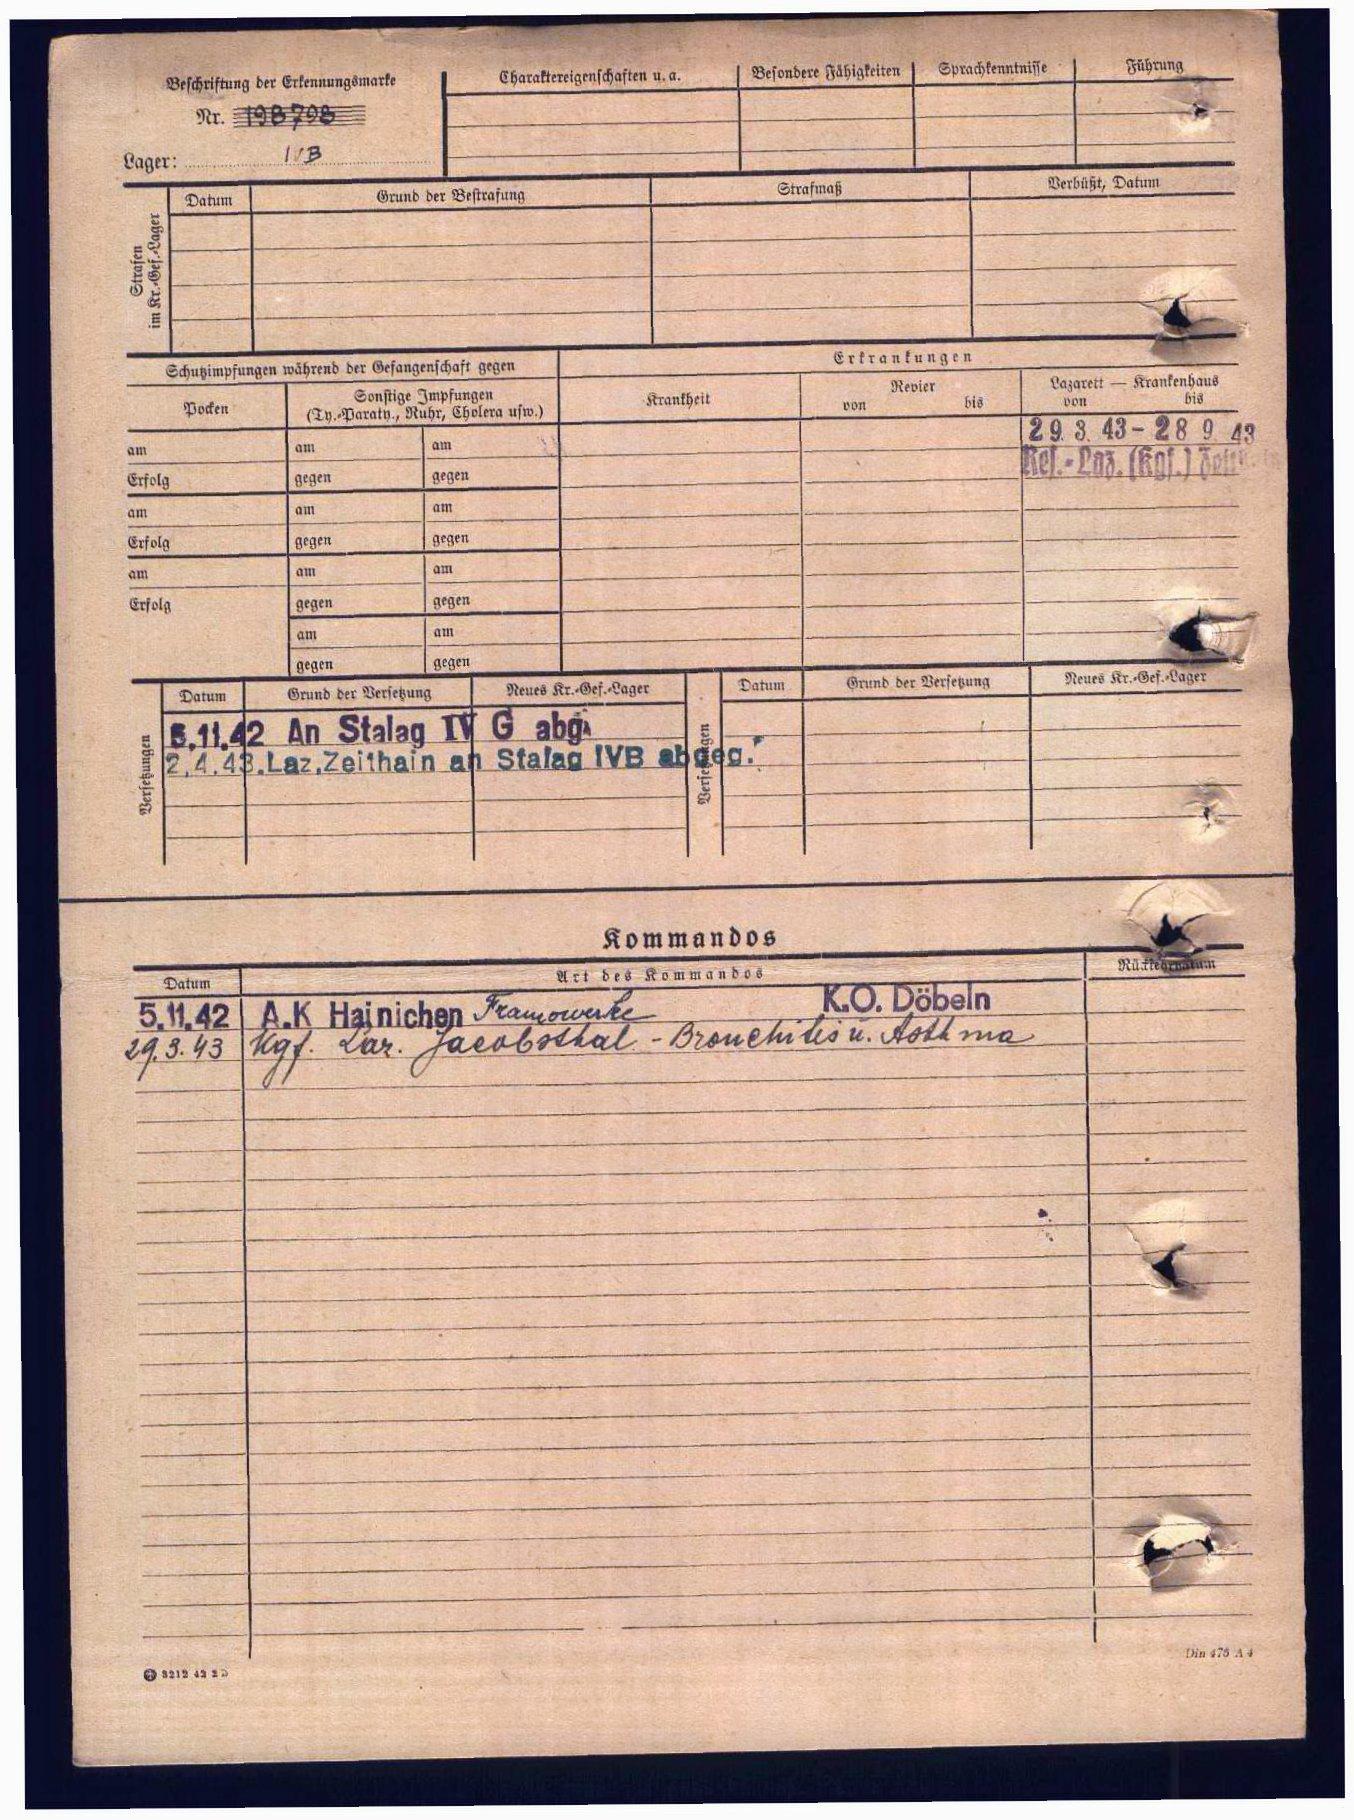 Beschriftung der Erkennungsmarke
Nr. 198798
Lager: IVB
Charaktereigenschaften u. a. Besondere Fähigkeiten Sprachkenntnisse Führung
Strafen im Kr.-Gef.-Lager
Datum Grund der Bestrafung Strafmaß Verbüßt, Datum
Schutzimpfungen während der Gefangenschaft gegen
Pocken
Sonstige Impfungen
(Ty.-Paraty., Ruhr, Cholera usw.)
am am am
Erfolg gegen gegen
am am am
Erfolg gegen gegen
am am am
Erfolg gegen gegen
am am
gegen gegen
Erkrankungen
Krankheit
Revier
von bis
Lazarett — Krankenhaus
von bis
29. 3. 43 - 28 9. 43
Res.-Laz. (Kgf.)
Versetzungen
Datum Grund der Versetzung Neues Kr.-Gef.-Lager
5.11.42 An Stalag IV G abg.
2.4.43. Laz. Zeithain an Stalag IVB abgeg.
Versetzungen
Datum Grund der Versetzung Neues Kr.-Gef.-Lager
Kommandos
Datum Art des Kommandos Rückkehrdatum
5.11.42 A.K Hainichen Framowerke K.O. Döbeln
29.3.43 Kgf. Laz. Jacobsthal - Bronchitis u. Asthma
3212 42 2 D
Din 476 A 4